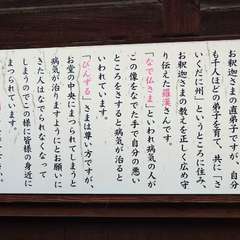 お釈迦さまの直弟子ですが、自分
も千人ほどの弟子を育て、共に「さ
いくだに州」というところに住み、
お釈迦さまの教えを正しく広め守
り伝えた羅漢さんです。
「なで仏さま」といわれ病気の人が
この像をなでた手で自分の悪い
ところをさすると病気が治ると
いわれています。
「びんずる」さまは尊い方ですが、
お堂の中央にまつられてしまうと
病気が治りますようにとお願いに
きた人はなでられなくなって
しまうのでこの様に皆様の身近に
まつられています。